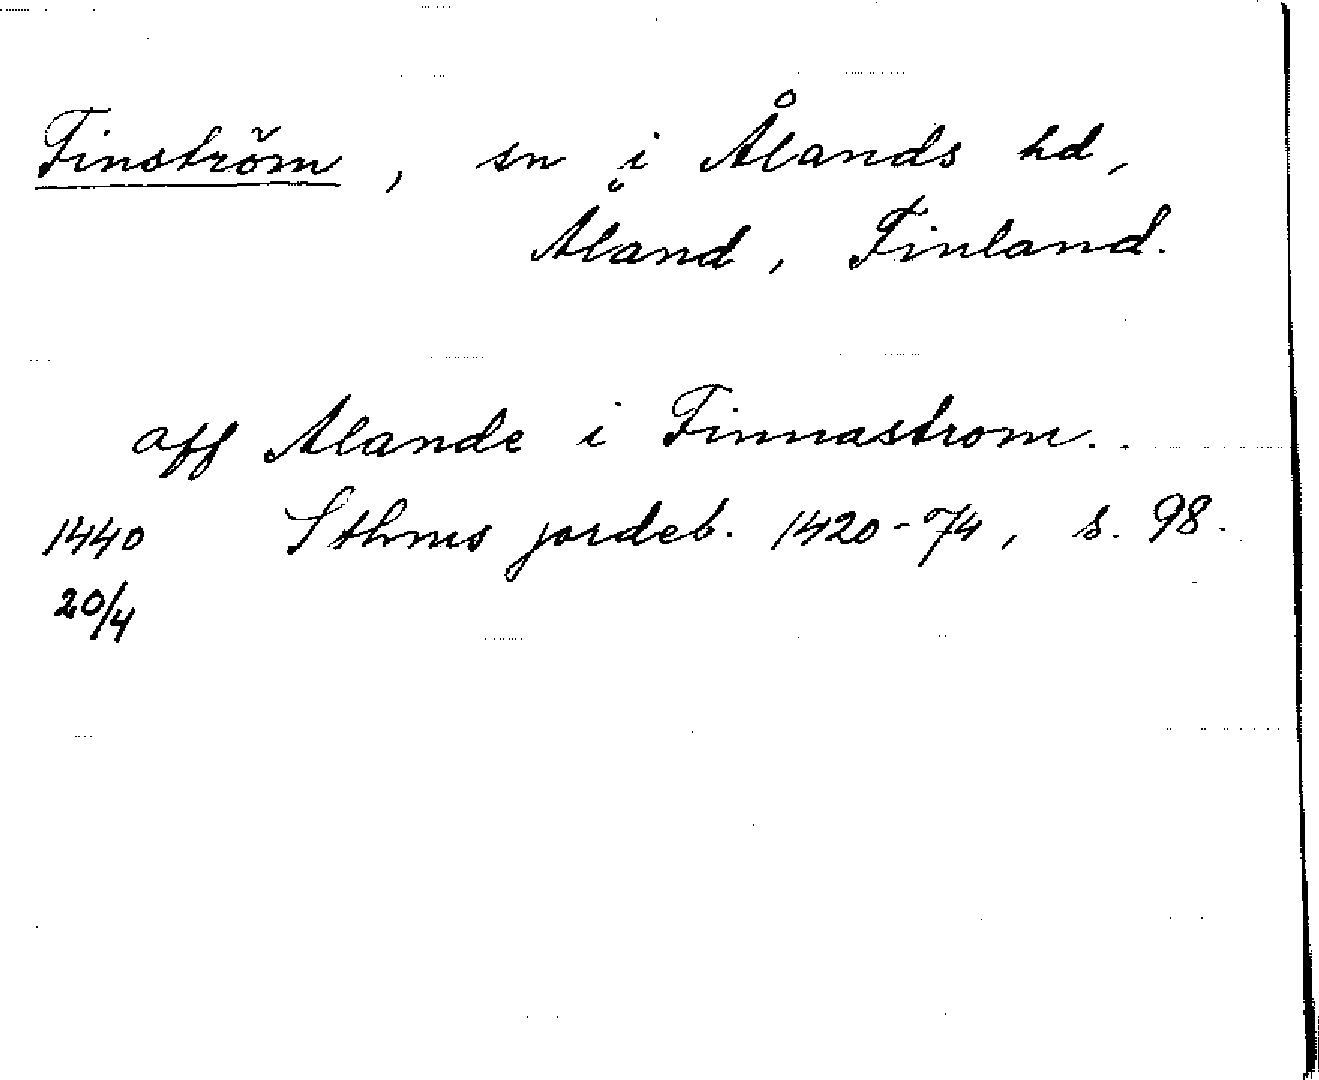 Finström, sn i Ålands hd,
Åland, Finland.
aff Alande i Finnastrom.
1440 Sthms jordeb. 1420-74, s. 98.
20/4